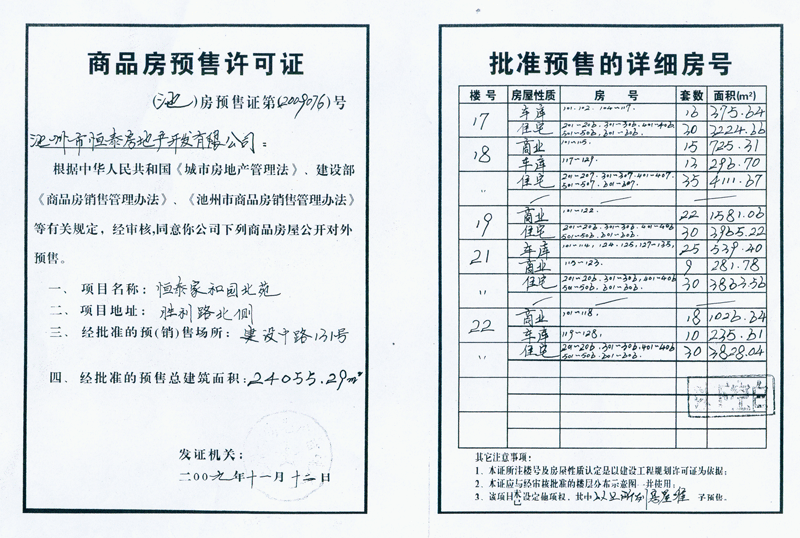 商品房预售许可证
(池)房预售证第(2009076)号
池州市恒泰房地产开发有限公司:
根据中华人民共和国《城市房地产管理法》、建设部
《商品房销售管理办法》、《池州市商品房销售管理办法》
等有关规定,经审核,同意你公司下列商品房屋公开对外
预售。
一、项目名称:恒泰家和园北苑
二、项目地址:胜利路北侧
三、经批准的预(销)售场所:建设中路131号
四、经批准的预售总建筑面积:24055.29m²
发证机关:
二00九年十一月十二日
批准预售的详细房号
楼号 房屋性质 房号 套数 面积(m²)
17 车库 101.102.104-117. 16 375.64
住宅 201-206.301-306.401-406. 501-506.601-606. 30 3224.66
18 商业 101-115. 15 725.31
车库 117-129. 13 296.70
〃 住宅 201-207.301-307.401-407. 501-507.601-607. 35 4111.67
19 商业 101-122. 22 1581.06
住宅 201-206.301-306.401-406 501-506.601-606. 30 3965.22
21 车库 101-114,124.125,127-135, 25 539.40
商业 115-123. 9 281.78
〃 住宅 201-206.301-306.401-406 501-506.601-606. 30 3863.56
22 商业 101-118. 18 1026.64
车库 119-128. 10 235.61
〃 住宅 201-206.301-306.401-406 501-506.601-606. 30 3828.04
其它注意事项:
1、本证所注楼号及房屋性质认定是以建设工程规划许可证为依据;
2、本证应与经审核批准的楼层分布示意图一并使用;
3、该项目未设定他项权,其中以上所列 予预售。